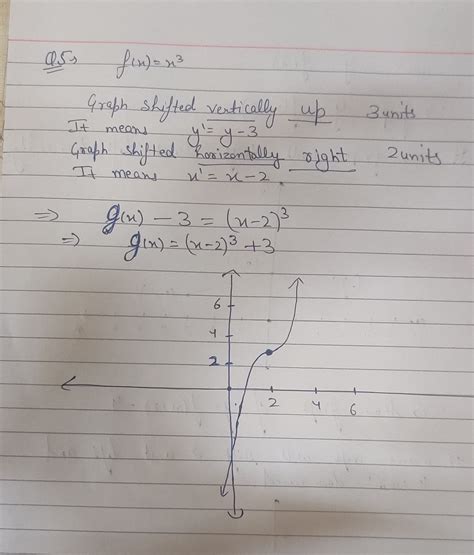 Q5→ f(x) = x³
Graph shifted vertically up 3 units
It means y' = y - 3
Graph shifted horizontally right 2 units
It means x' = x - 2
⇒ g(x) - 3 = (x-2)³
⇒ g(x) = (x-2)³ + 3
6
4
2
2 4 6